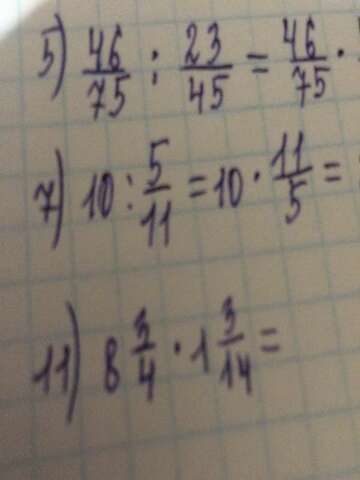 5) 46/75 : 23/45 = 46/75 ·
7) 10 : 5/11 = 10 · 11/5 =
11) 8 3/4 · 1 3/14 =